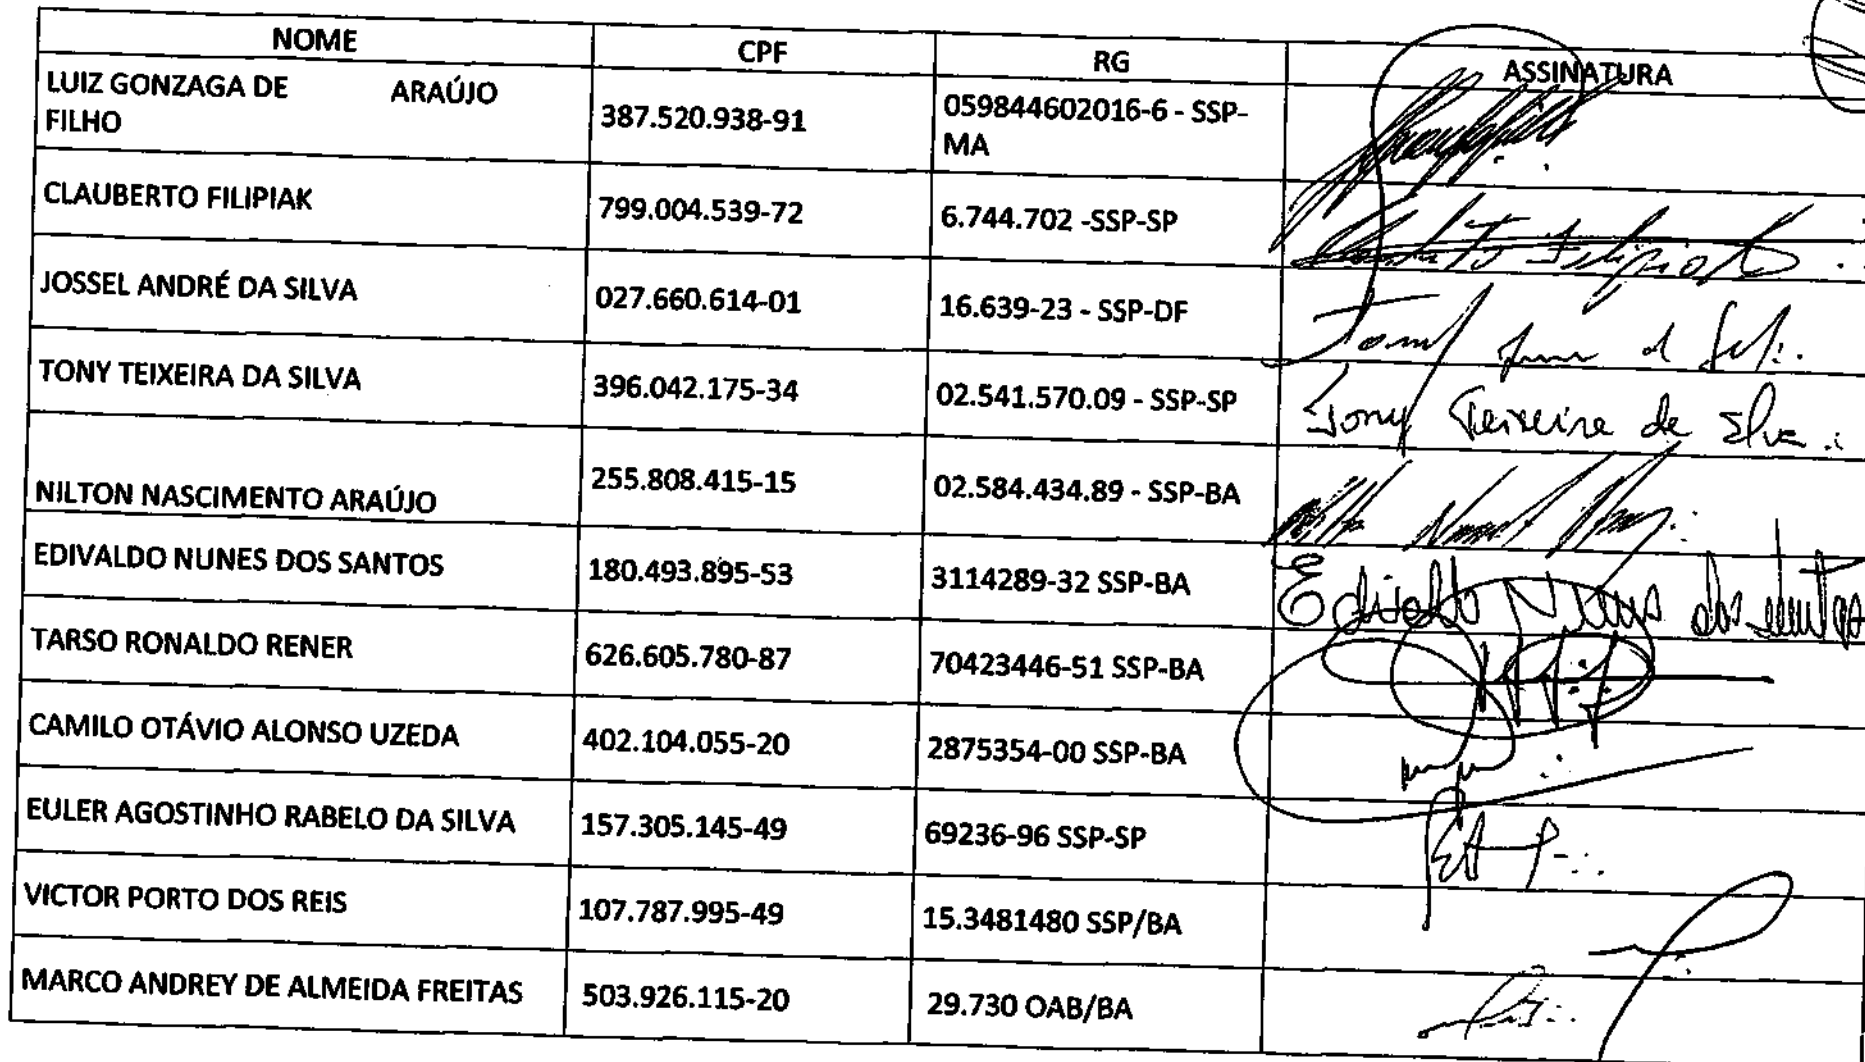 NOME CPF RG ASSINATURA
LUIZ GONZAGA DE ARAÚJO
FILHO 387.520.938-91 059844602016-6 - SSP-
MA
CLAUBERTO FILIPIAK 799.004.539-72 6.744.702 -SSP-SP
JOSSEL ANDRÉ DA SILVA 027.660.614-01 16.639-23 - SSP-DF
TONY TEIXEIRA DA SILVA 396.042.175-34 02.541.570.09 - SSP-SP Tony Teixeira da Silva
NILTON NASCIMENTO ARAÚJO 255.808.415-15 02.584.434.89 - SSP-BA
EDIVALDO NUNES DOS SANTOS 180.493.895-53 3114289-32 SSP-BA Edivaldo Nunes dos Santos
TARSO RONALDO RENER 626.605.780-87 70423446-51 SSP-BA
CAMILO OTÁVIO ALONSO UZEDA 402.104.055-20 2875354-00 SSP-BA
EULER AGOSTINHO RABELO DA SILVA 157.305.145-49 69236-96 SSP-SP
VICTOR PORTO DOS REIS 107.787.995-49 15.3481480 SSP/BA
MARCO ANDREY DE ALMEIDA FREITAS 503.926.115-20 29.730 OAB/BA